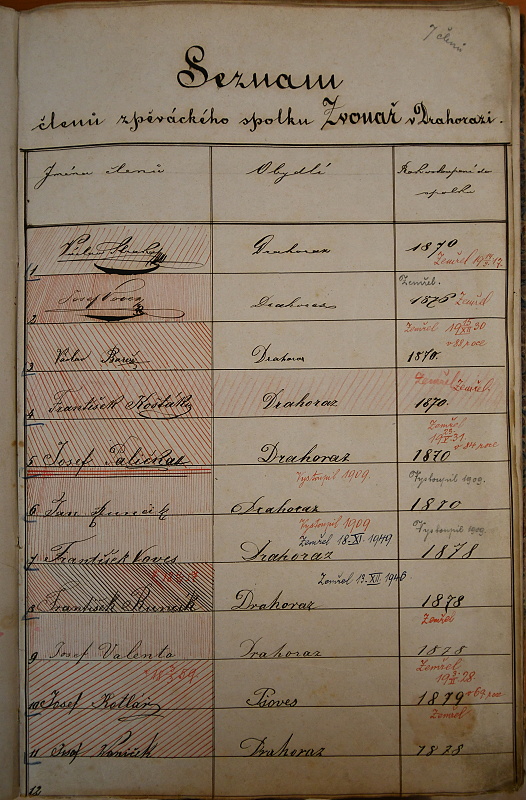 7 členů
Seznam
členů zpěváckého spolku Zvonař v Drahorazi.
Jména členů Obydlí Rok vstoupení do
spolku
1 Václav Drahoraz 1870
Zemřel
Zemřel.
2 Josef Drahoraz 1876 Zemřel
Zemřel 19 15/XII 30
v 88 roce
3 Václav Drahoraz 1870.
Zemřel Zemřel.
4 František Košťák Drahoraz 1870.
Zemřel
19 31
v 84 roce
5 Josef Paličkář Drahoraz 1870
Vystoupil 1909. Vystoupil 1909.
6 Jan Drahoraz 1870
Vystoupil 1909 Vystoupil 1909.
Zemřel 18-XI-1949
7 František Voves Drahoraz 1878
Zemřel 13-XII 1946
8 František Drahoraz 1878
Zemřel
9 Josef Valenta Drahoraz 1878
Zemřel
19 28
10 Josef Kotlář 1879 v 67 roce
Zemřel
11 Josef Drahoraz 1878
12